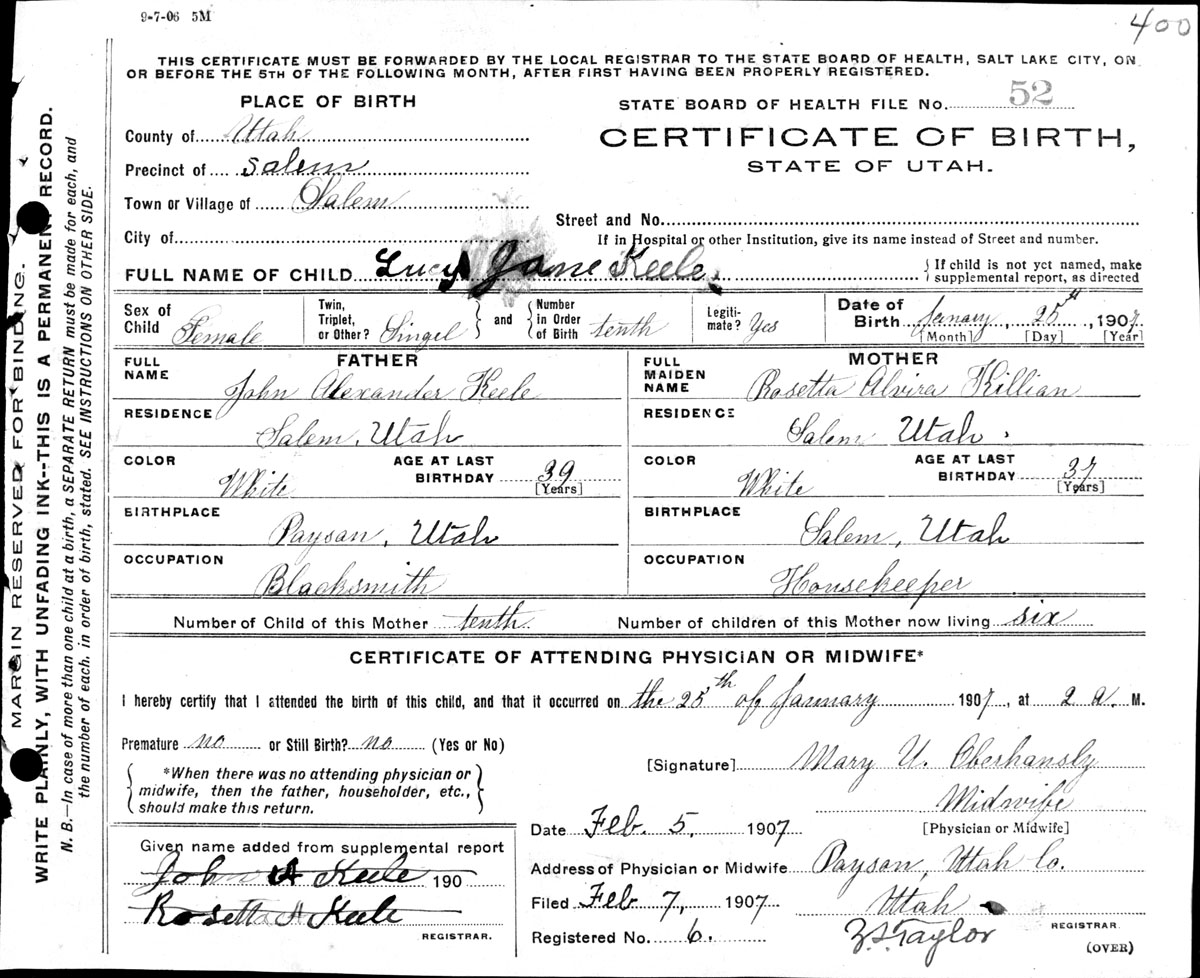 9-7-06 5M
400
THIS CERTIFICATE MUST BE FORWARDED BY THE LOCAL REGISTRAR TO THE STATE BOARD OF HEALTH, SALT LAKE CITY, ON
OR BEFORE THE 5TH OF THE FOLLOWING MONTH, AFTER FIRST HAVING BEEN PROPERLY REGISTERED.
PLACE OF BIRTH
STATE BOARD OF HEALTH FILE No. 52
County of Utah
CERTIFICATE OF BIRTH,
Precinct of Salem
STATE OF UTAH.
Town or Village of Salem
Street and No.
City of
If in Hospital or other Institution, give its name instead of Street and number.
FULL NAME OF CHILD Lucy Jane Keele
If child is not yet named, make
supplemental report, as directed
Sex of
Child Female
Twin,
Triplet,
or Other? Singel
and
Number
in Order
of Birth tenth
Legiti-
mate? Yes
Date of
Birth January, 25th, 1907
[Month] [Day] [Year]
FATHER
FULL
NAME
John Alexander Keele
RESIDENCE
Salem, Utah
COLOR
White
AGE AT LAST
BIRTHDAY 39
[Years]
BIRTHPLACE
Payson, Utah
OCCUPATION
Blacksmith
MOTHER
FULL
MAIDEN
NAME
Rosetta Alvira Killian
RESIDENCE
Salem Utah.
COLOR
White
AGE AT LAST
BIRTHDAY 37
[Years]
BIRTHPLACE
Salem, Utah
OCCUPATION
Housekeeper
Number of Child of this Mother tenth Number of children of this Mother now living six
CERTIFICATE OF ATTENDING PHYSICIAN OR MIDWIFE*
I hereby certify that I attended the birth of this child, and that it occurred on the 25th of January 1907, at 2 a. M.
Premature no or Still Birth? no (Yes or No)
*When there was no attending physician or
midwife, then the father, householder, etc.,
should make this return.
[Signature] Mary U. Oberhansly
Midwife
[Physician or Midwife]
Date Feb. 5, 1907
Address of Physician or Midwife Payson, Utah Co.
Filed Feb 7, 1907
Utah
Registered No. 6.
Taylor
REGISTRAR.
(OVER)
Given name added from supplemental report
John A Keele 190
Rosetta A Keele
REGISTRAR.
MARGIN RESERVED FOR BINDING.
WRITE PLAINLY, WITH UNFADING INK--THIS IS A PERMANENT RECORD.
N. B.—In case of more than one child at a birth, a SEPARATE RETURN must be made for each, and
the number of each, in order of birth, stated. SEE INSTRUCTIONS ON OTHER SIDE.